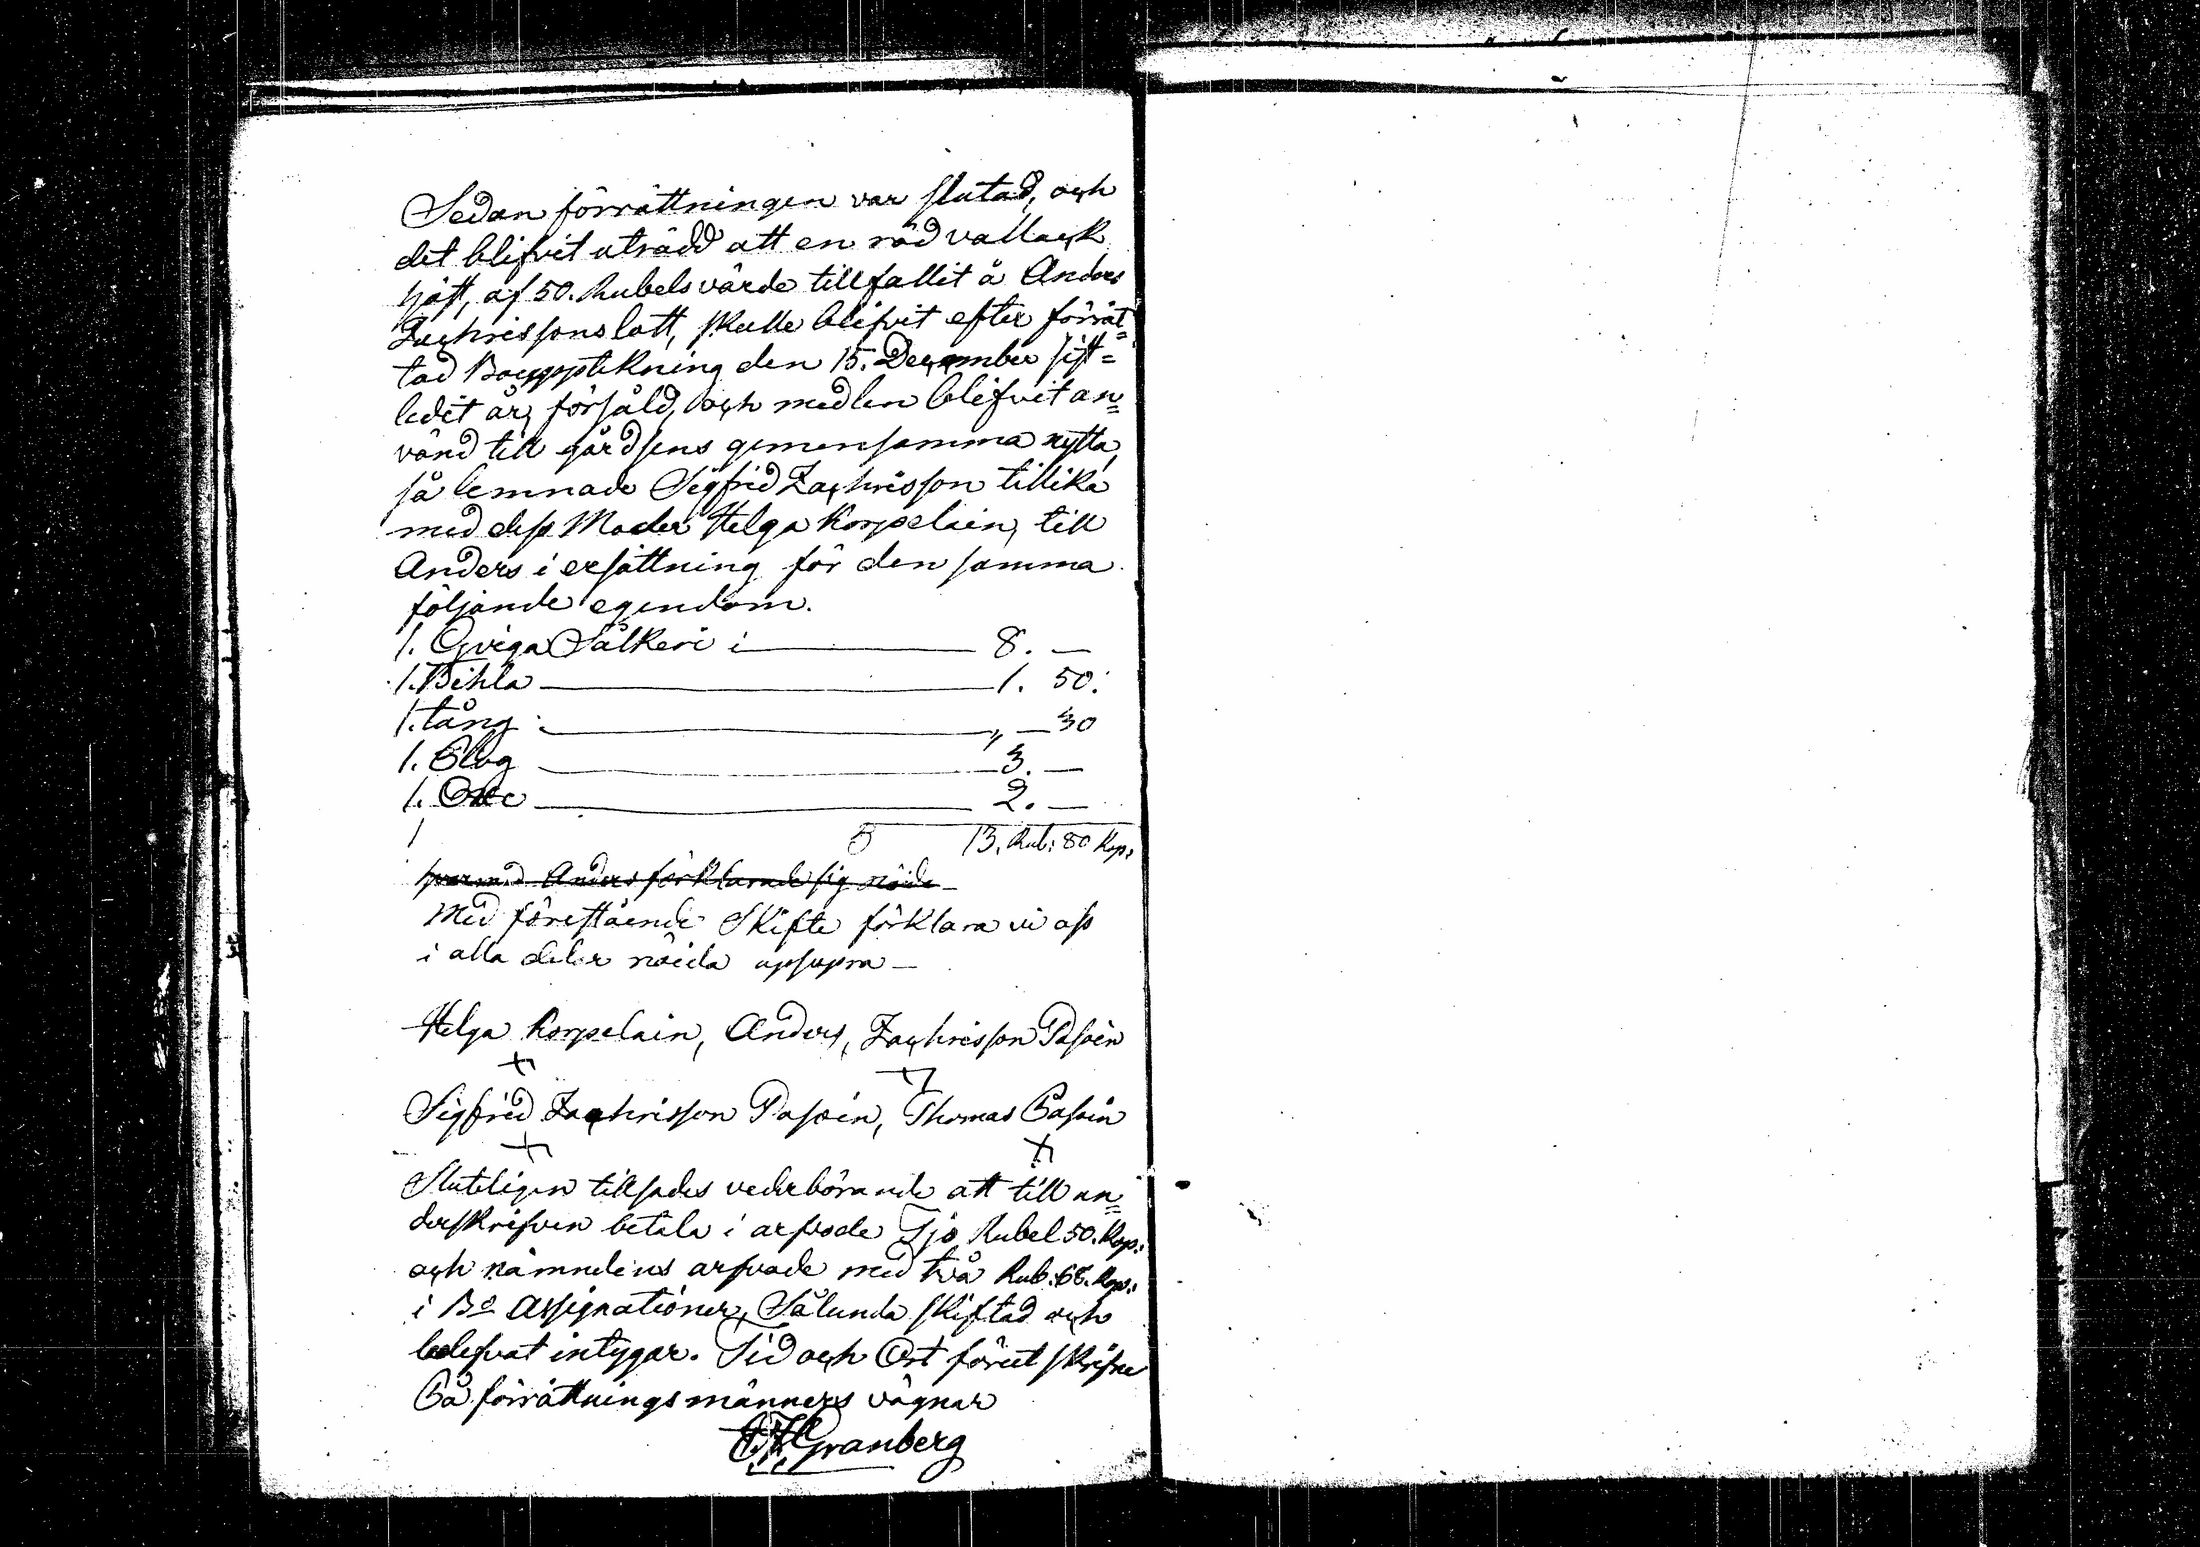 Sedan förrättningen var slutad, och
det blifvit uträdd att en röd vallack
häst, af 50. Rubels värde tillfallit å Anders
Zachrissons lott, skulle blifvit efter förrät=
tad Boupptekning den 15. December sist=
ledit år, försåld, och medlen blifvit an=
vänd till gårdsens gemensamma nytta,
så lemnade Sigfrid Zachrisson tillika
med dess Moder Helga Korpelain, till
Anders i ersättning för den samma
följande egendom.
1. Qviga Sälkeri i 8. —
1. Bihla 1. 50.
1. tång „ — 30
1. Plog 3. —
1. 2. —
13. Rub: 80 Kop:
hvarmed Anders förklarade sig nöde
Med förestående Skifte förklara vi oss
i alla delar nöida utsupra —
Helga Korpelain, Anders, Zachrisson Pasoin
Sigfrid Zachrisson Pasoin, Thomas Pasoin
Sluteligen tillsades vederbörande att till un=
derskrifven betala i arfvode Tjo Rubel 50. Kop:
och nämndens arfvode med två Rub: 68. Kop:
i Bo Assignationer, Sålunda skiftad och
belefvat intygar. Tid och Ort förut skrifne
På förrättningsmänners vägnar
Granberg